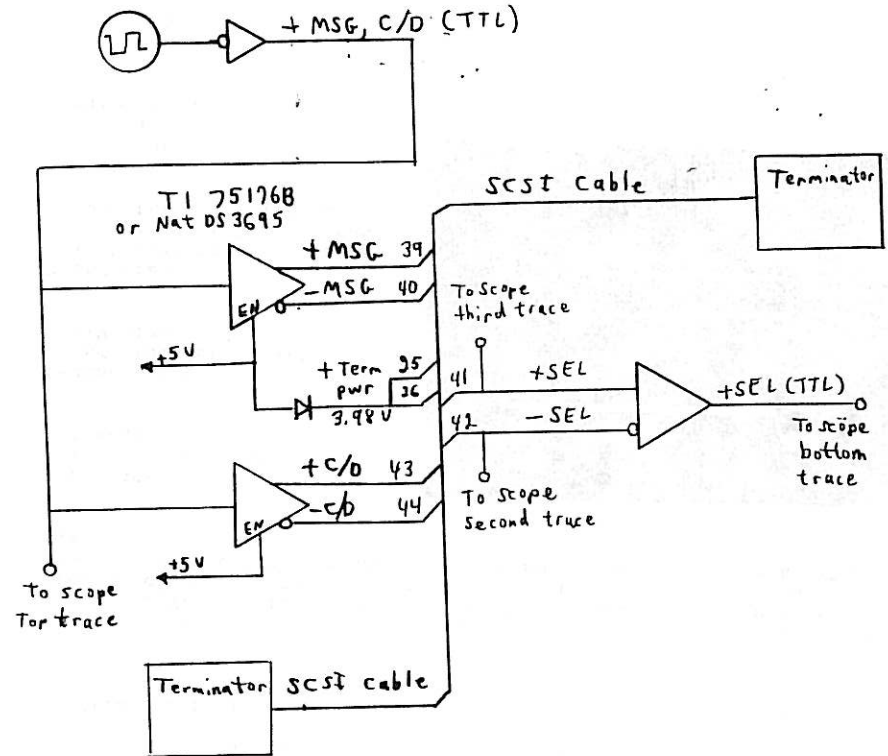 + MSG, C/D (TTL)
TI 75176B
or Nat DS3695
SCSI Cable
Terminator
+ MSG 39
- MSG 40
EN
+5V
To scope
third trace
+ Term
pwr
3.98 V
25
26
41
+SEL
42
- SEL
+SEL (TTL)
To scope
bottom
trace
To scope
second trace
+ C/D 43
- C/D 44
EN
+5V
To scope
Top trace
Terminator
SCSI cable